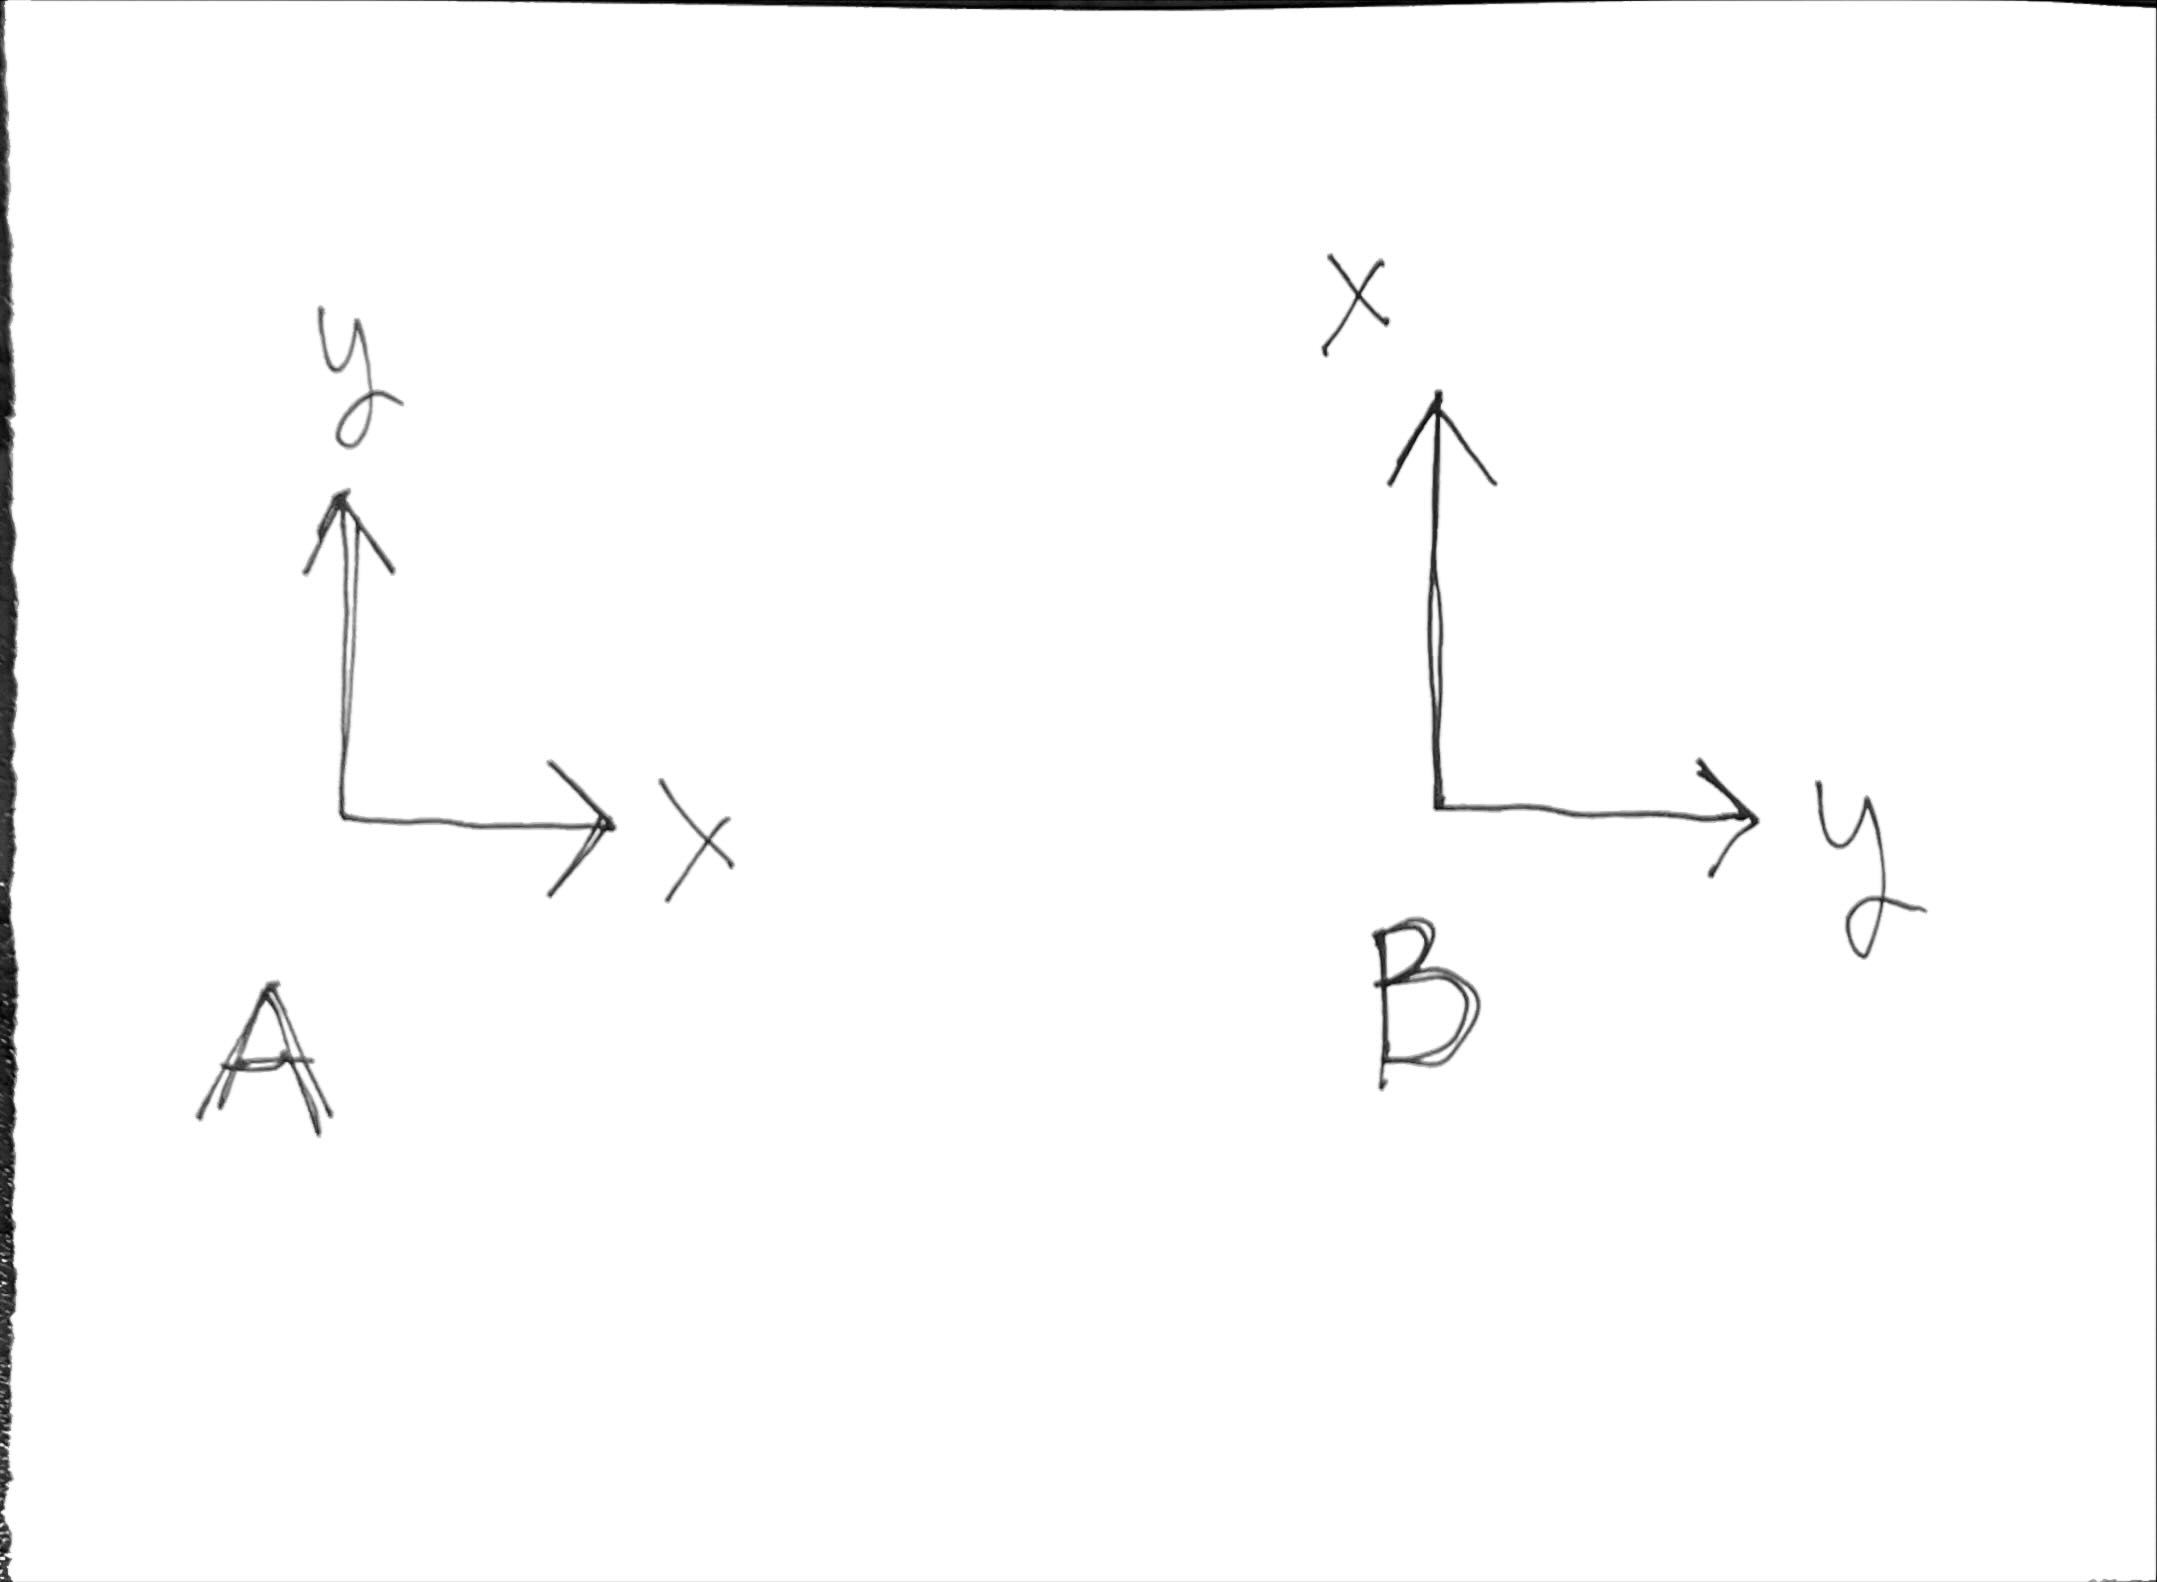 y
x
A
x
y
B